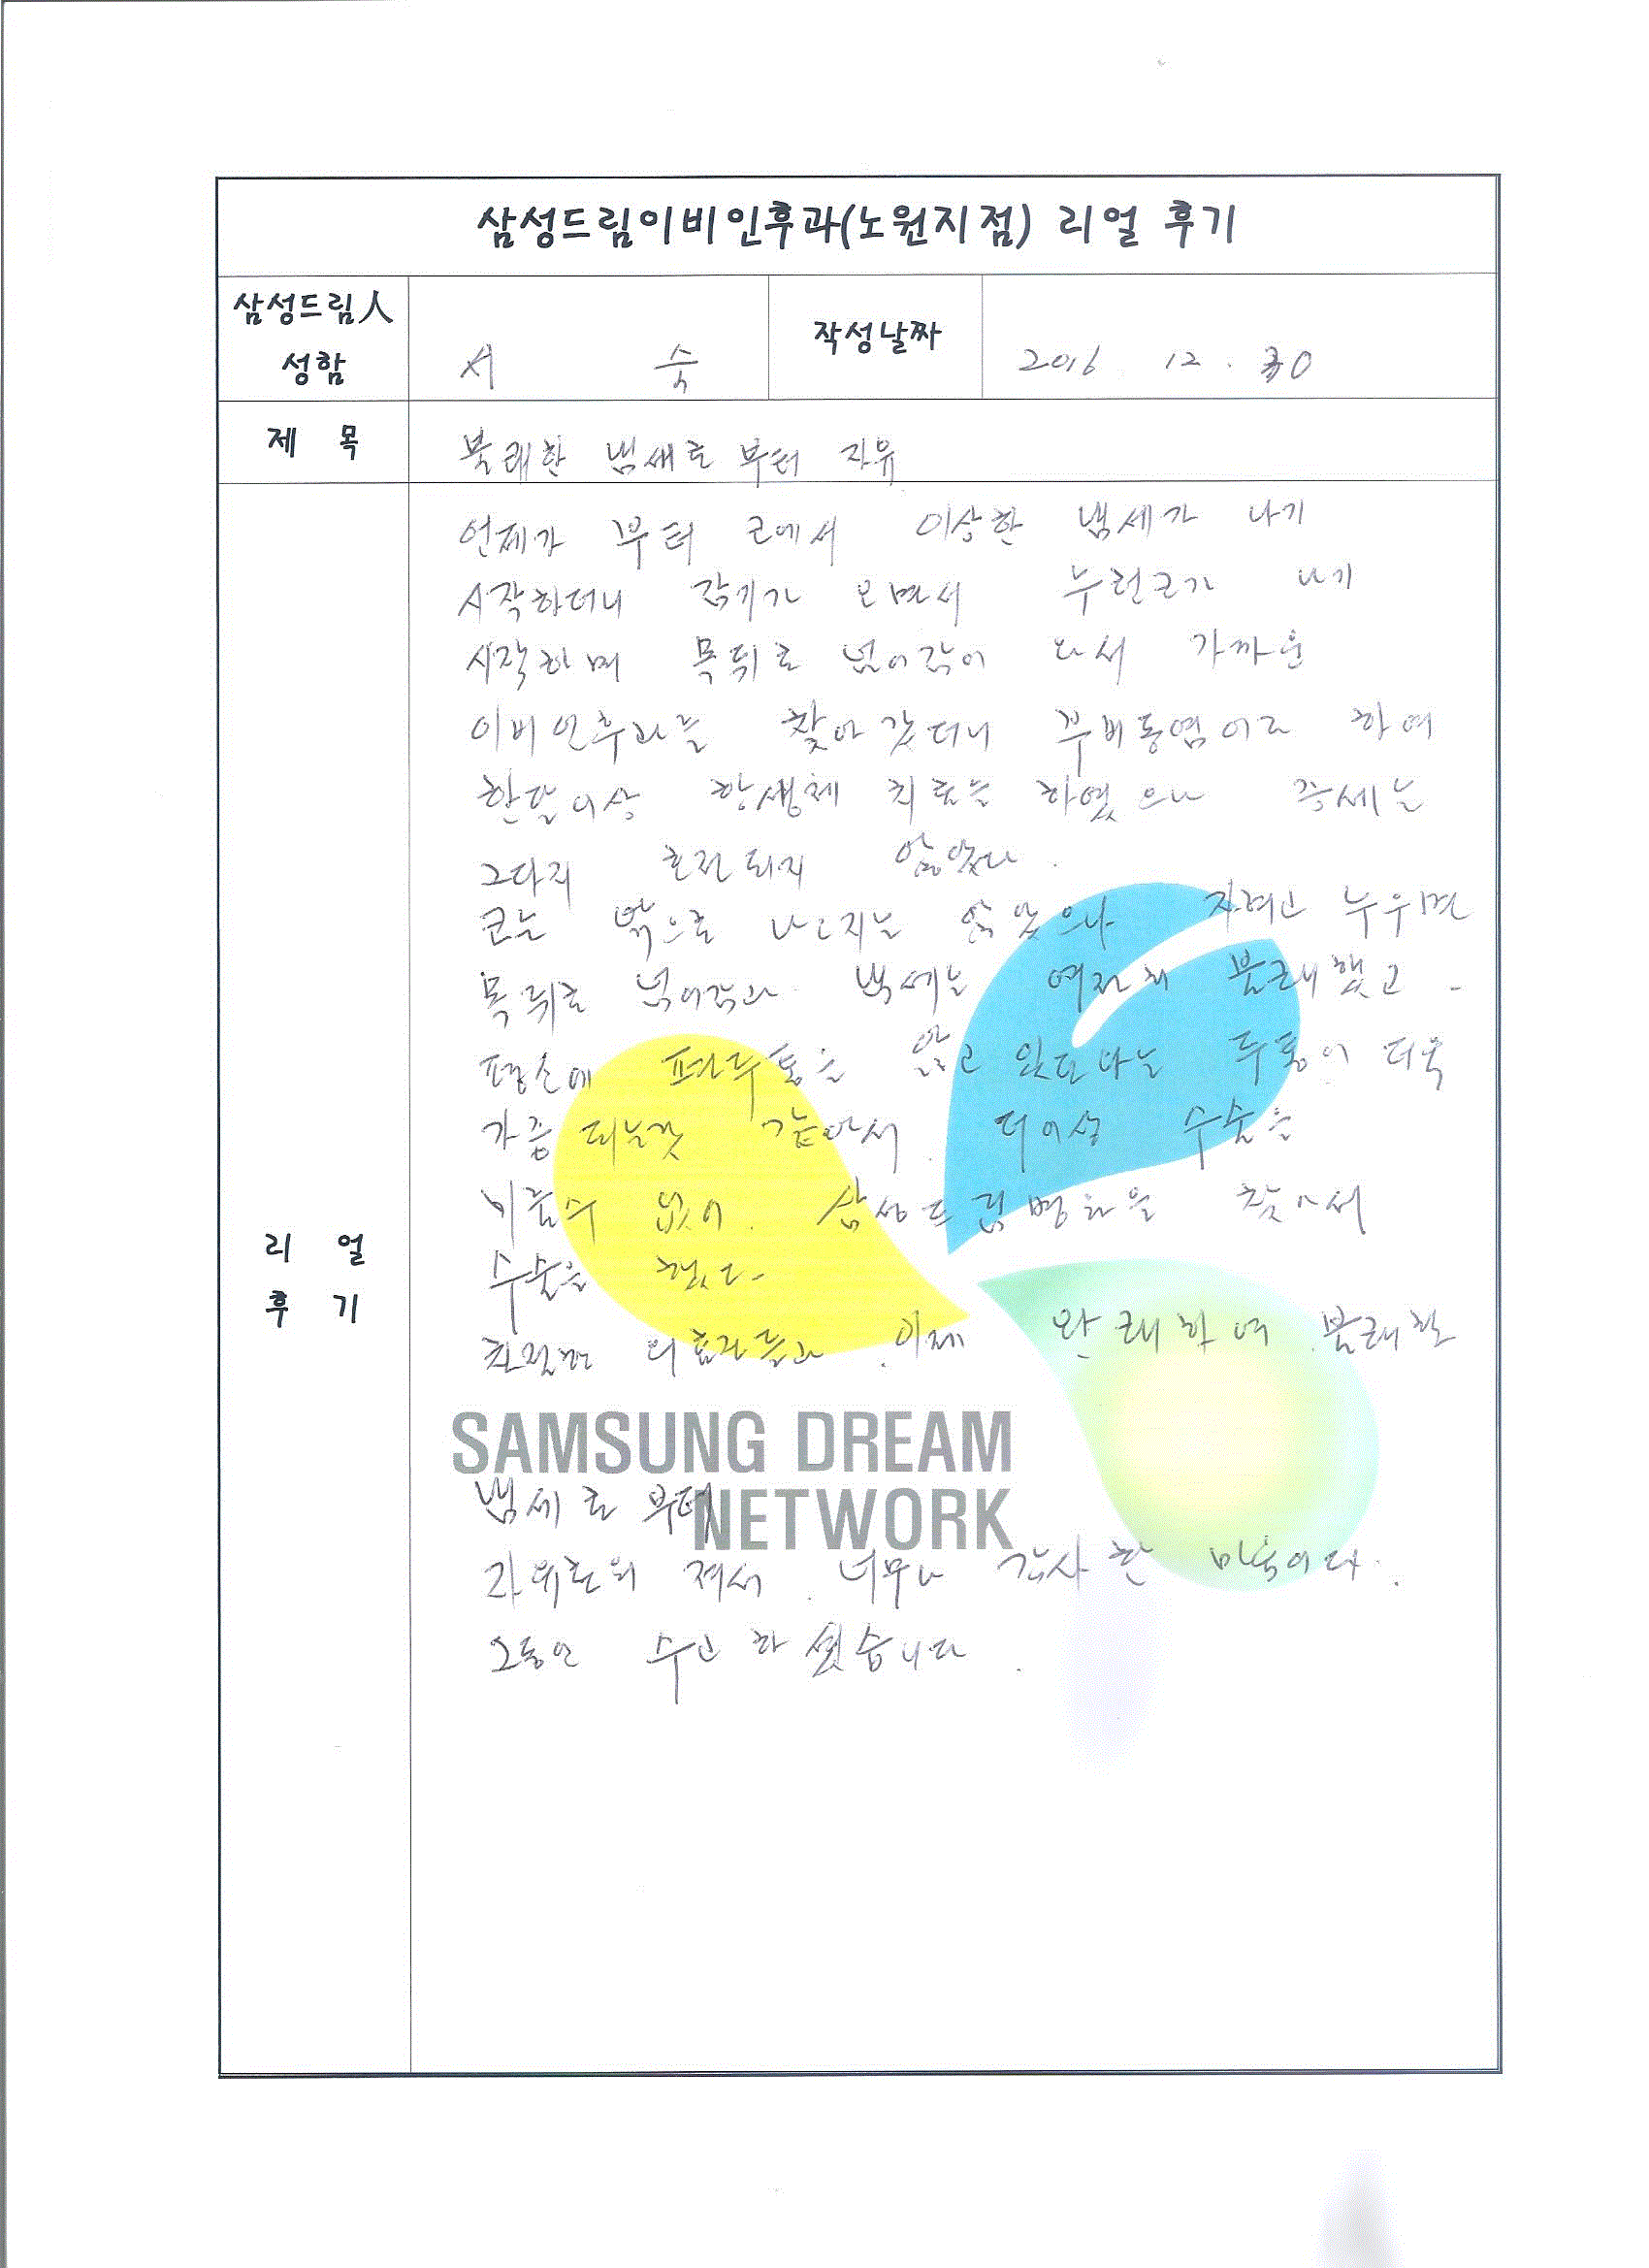 삼성드림이비인후과(노원지점) 리얼 후기
삼성드림人
성함
서 숙
작성날짜
2016 . 12 . 30
제 목
불쾌한 냄새로 부터 자유
리 얼
후 기
언제가 부터 코에서 이상한 냄세가 나기
시작하더니 감기가 오면서 누런코가 나기
시작하며 목뒤로 넘어감이 와서 가까운
이비인후과를 찾아 갓더니 부비동염이라 하여
한달이상 항생제 치료를 하였으나 증세는
그다지 호전되지 않았다.
코는 밖으로 나오지는 않았으나 자려고 누우면
목뒤로 넘어감과 냄세는 여전히 불쾌했고
평소에 편두통을 앓고 있던 나는 두통이 더욱
가중 되는것 같아서. 더이상 수술을
미룰수 없어. 삼성드림병원을 찾아서
수술을 했다.
친절한 의료진들과 이제 완쾌하여 불쾌한
SAMSUNG DREAM
NETWORK
냄세로 부터
자유로워 져서. 너무나 감사한 마음이다.
그동안 수고 하셨습니다.